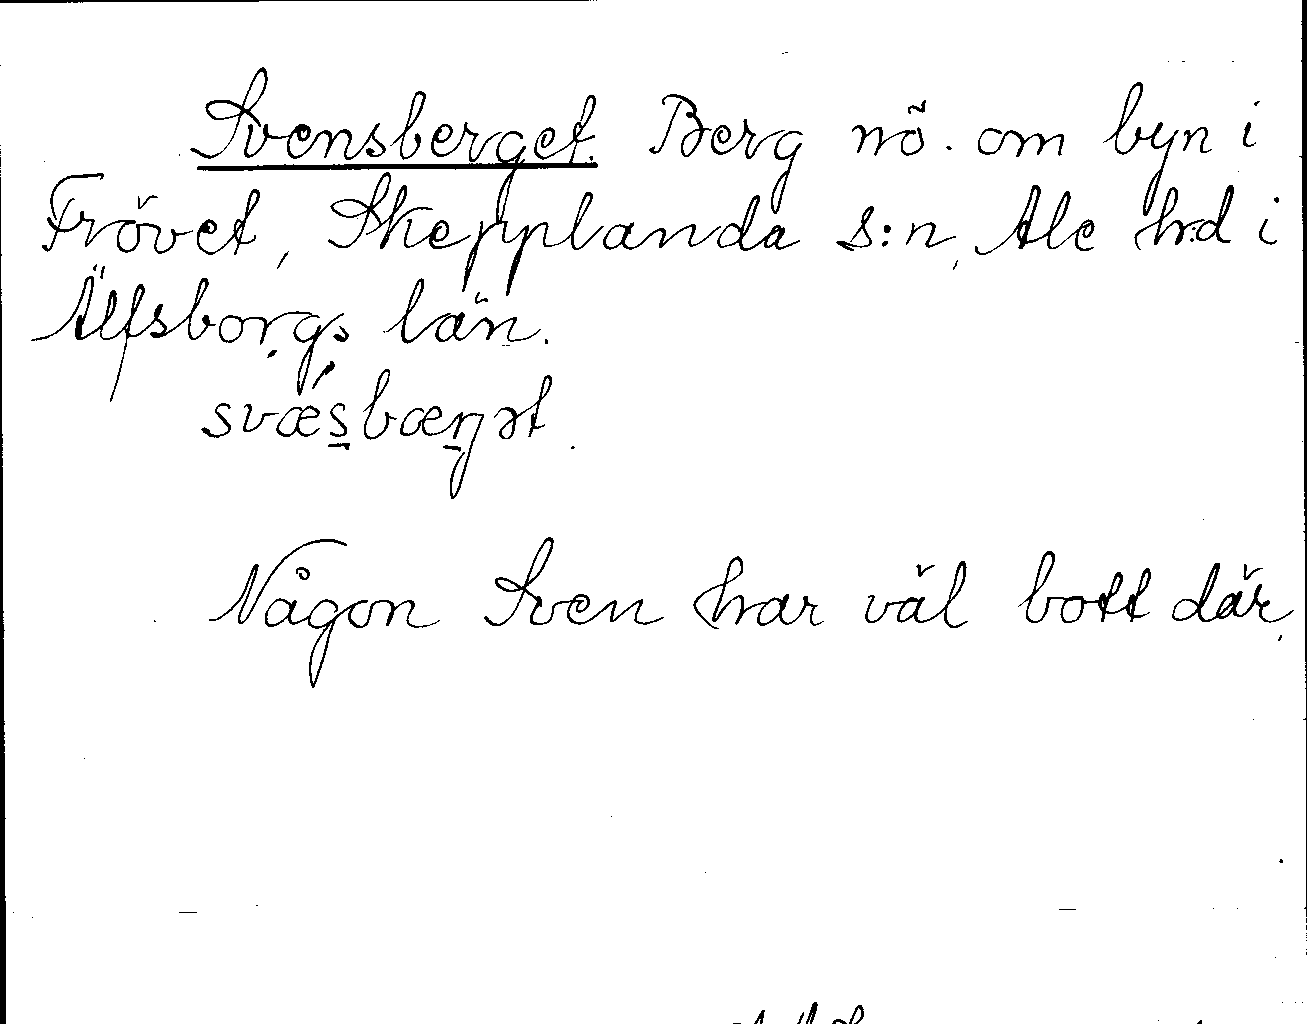 Svensberget. Berg nö. om byn i
Frövet, Skepplanda s:n, Ale h:d i
Älfsborgs län.
Någon Sven har väl bott där.